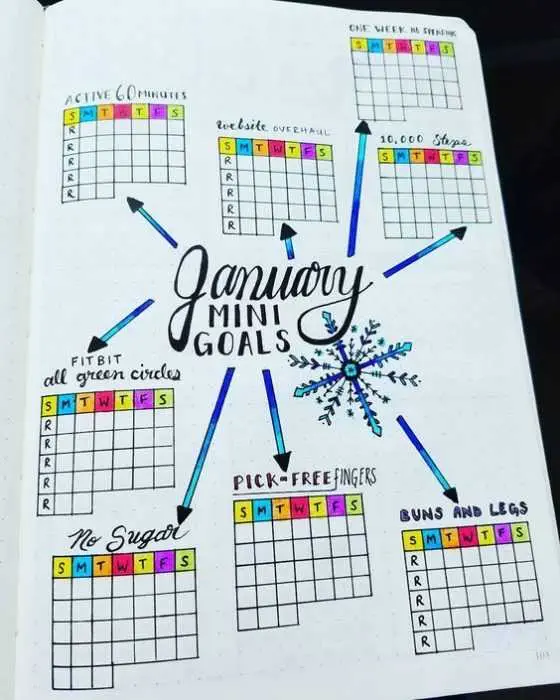 ONE WEEK NO SPENDING
S M T W T F S
ACTIVE 60 MINUTES
S M T W T F S
R
R
R
R
R
website OVERHAUL
S M T W T F S
R
R
R
R
R
10,000 Steps
S M T W T F S
January
MINI
GOALS
FITBIT
all green circles
S M T W T F S
R
R
R
R
R
No Sugar
S M T W T F S
PICK-FREE FINGERS
S M T W T F S
BUNS AND LEGS
S M T W T F S
R
R
R
R
R